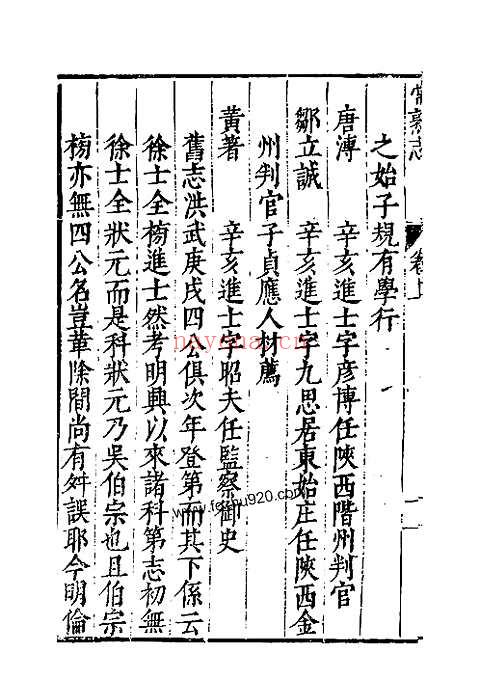 常熟志
卷上
之始子規有學行
唐溥 辛亥進士字彥博任陝西階州判官
鄒立誠 辛亥進士字九思居東始庄任陝西金
州判官子貞應人材薦
黃著 辛亥進士字昭夫任監察御史
舊志洪武庚戌四公俱次年登第而其下係云
徐士全榜進士然考明興以來諸科第志初無
徐士全狀元而是科狀元乃吳伯宗也且伯宗
榜亦無四公名豈革除間尚有舛誤耶今明倫